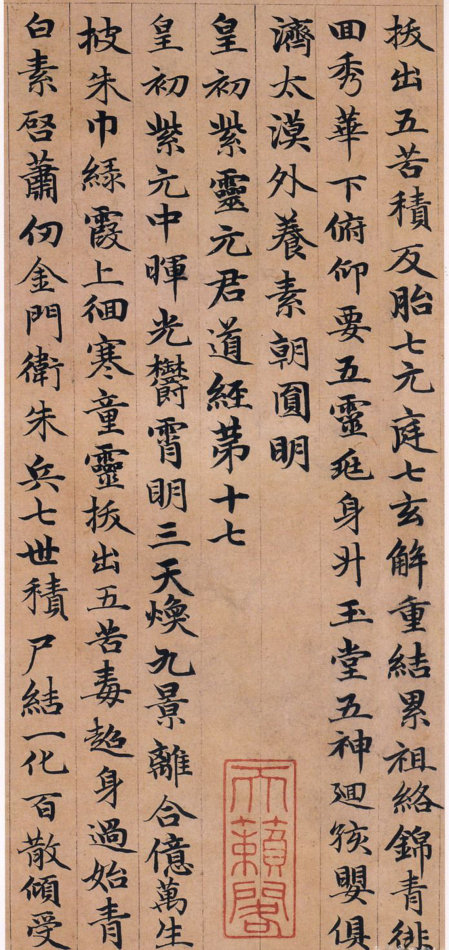 拔出五苦積反胎七元庭七玄解重結累祖絡錦青徘
囬秀華下俯仰要五靈珽身升玉堂五神廻孩嬰俱
濟太漠外養素朝圓明
皇初紫靈元君道經第十七
皇初紫元中暉光欝霄明三天煥九景離合億萬生
披朱巾緑霞上徊寒童靈拔出五苦毒超身過始青
白素啓蕭仞金門衛朱兵七世積尸結一化百散傾受
天籟閣